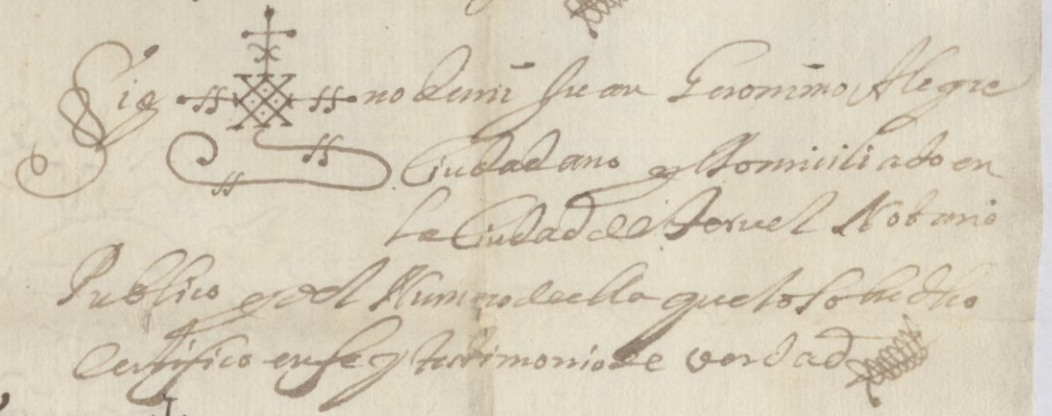 Sig no de mi Juan Geronimo Alegre
Ciudadano y Domiciliado en
La Ciudad de Teruel Notario
Publico y del Numero de ella que lo sobredho
Certifico en fe y testimonio de verdad